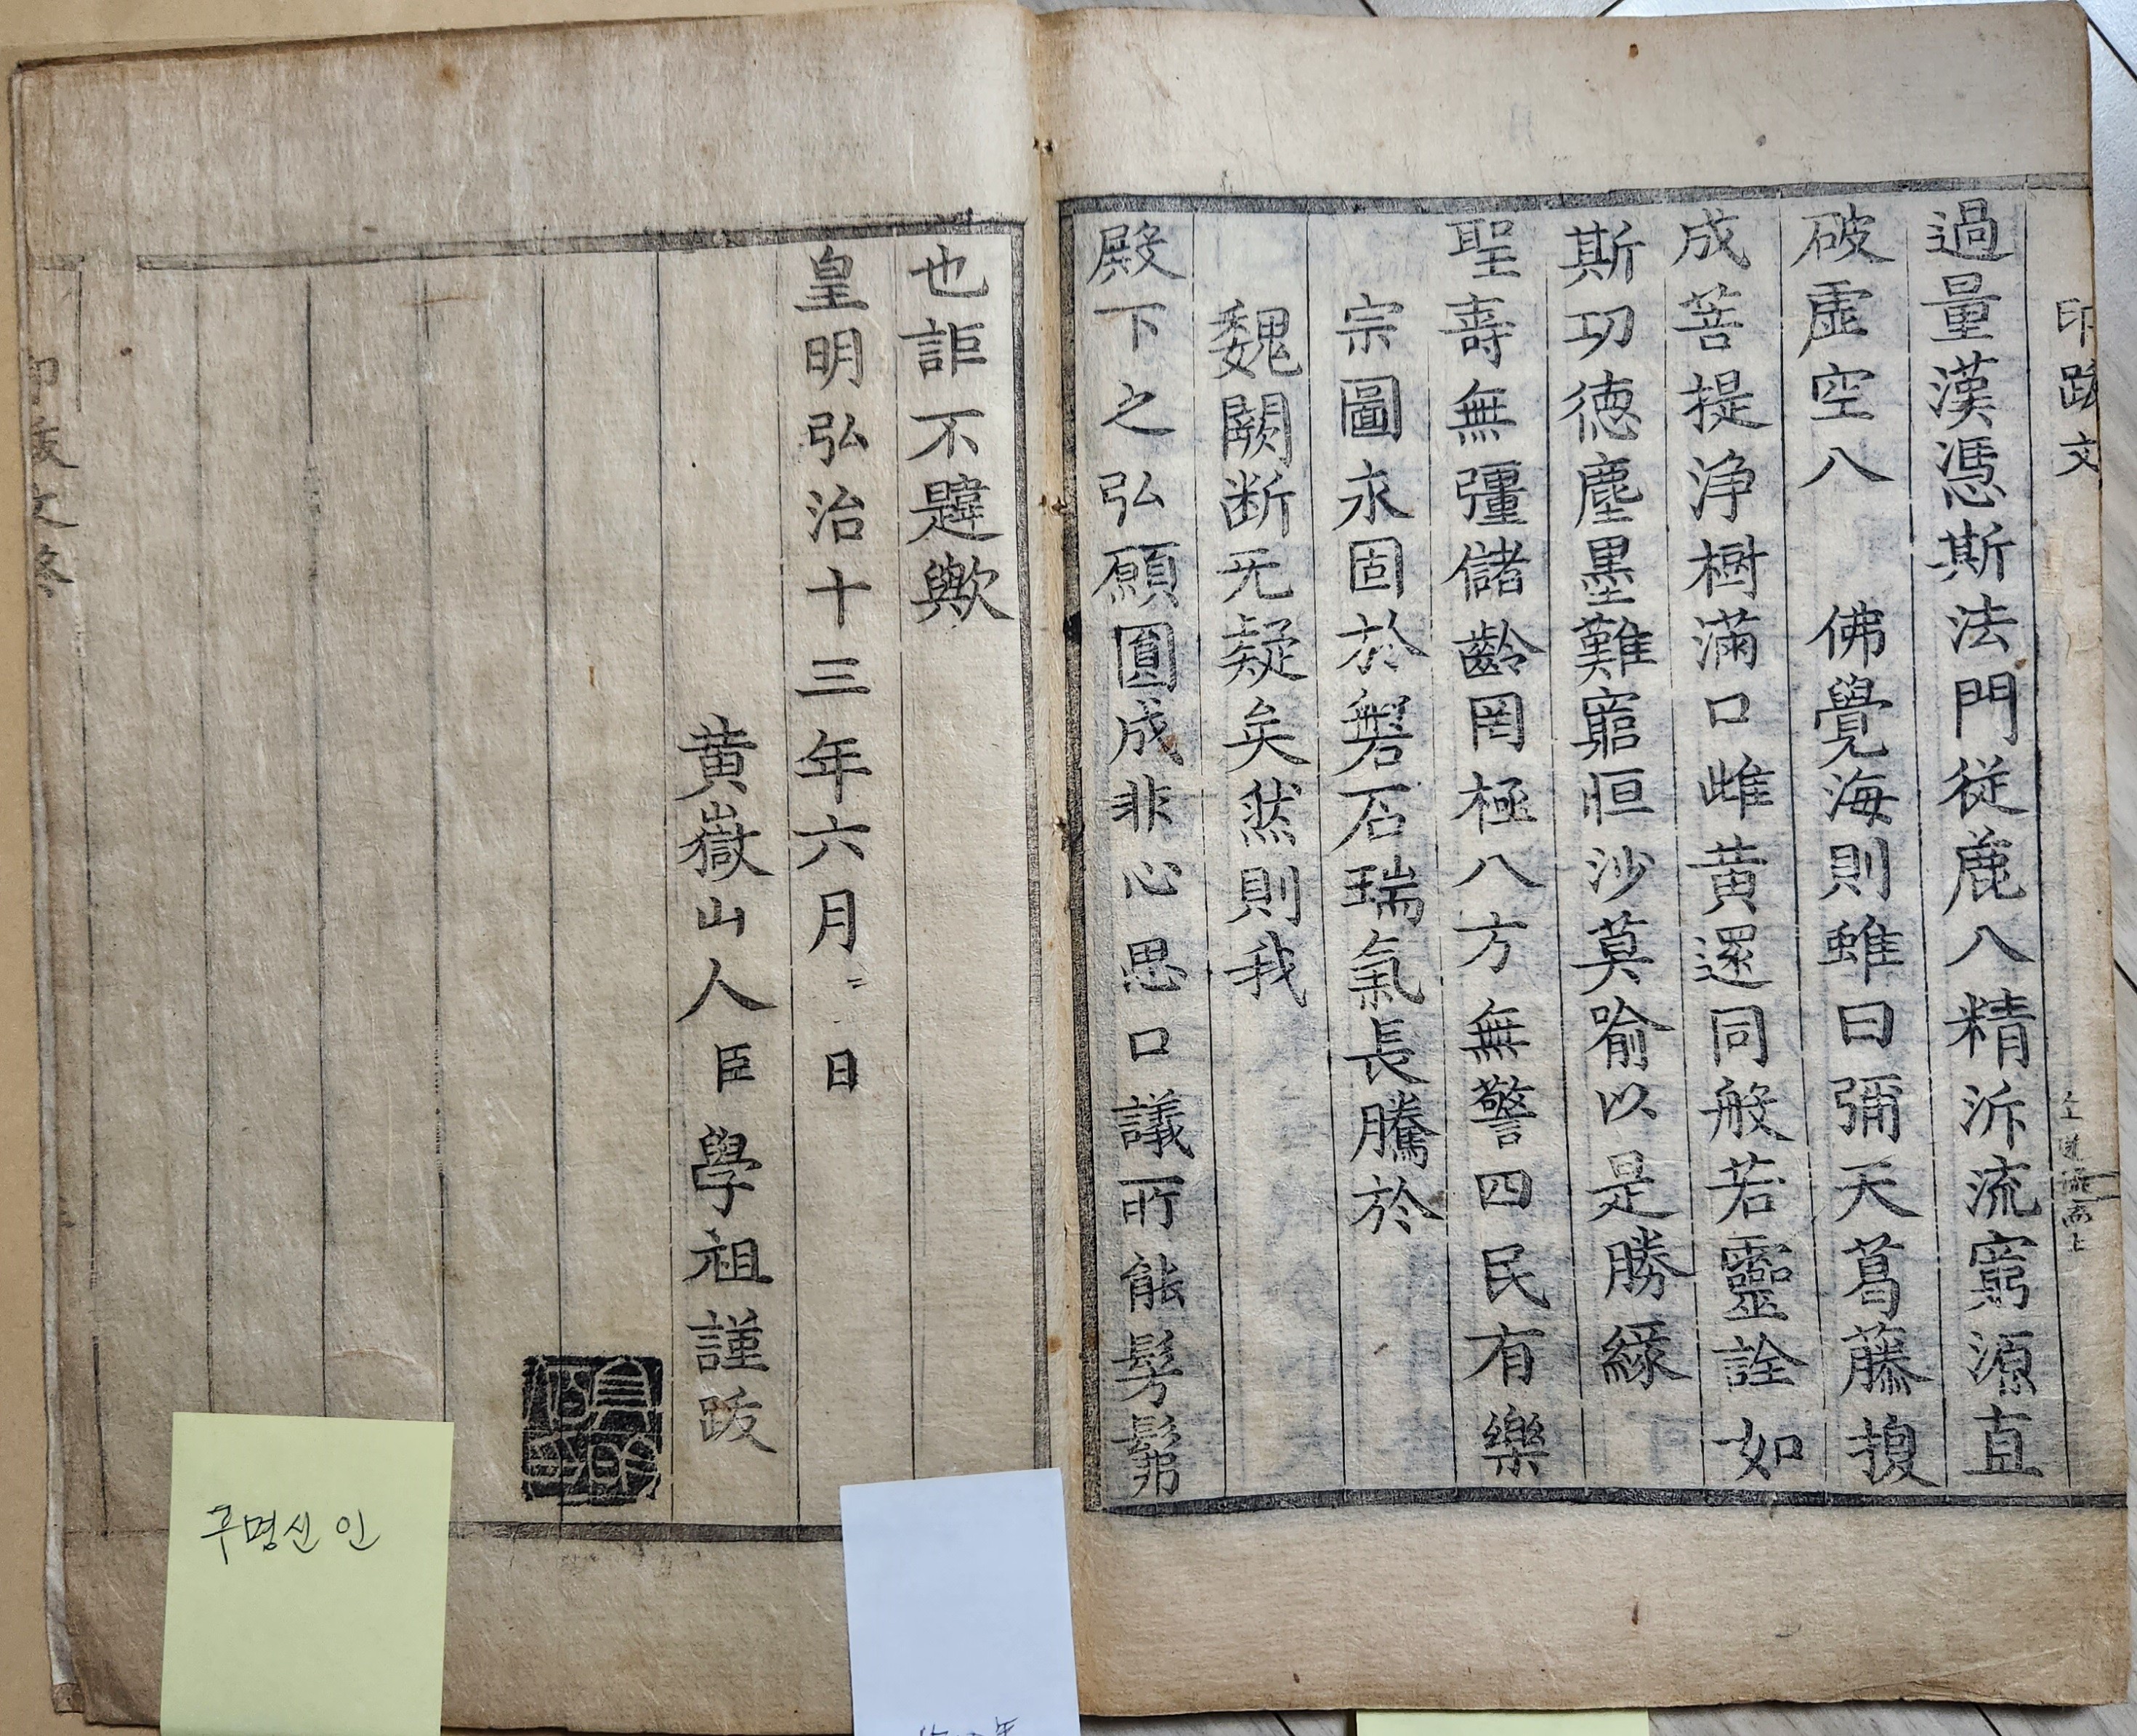 印跋文
過量漢憑斯法門從麁入精泝流窮源直
破虛空八 佛覺海則雖曰彌天葛藤揔
成菩提淨樹滿口雌黃還同般若靈詮如
斯功德塵墨難窮恒沙莫喻以是勝緣
聖壽無彊儲齡罔極八方無警四民有樂
宗圖永固於磐石瑞氣長騰於
魏闕斷无疑矣然則我
殿下之弘願圓成非心思口議所能髣髴
也詎不韙歟
皇明弘治十三年六月 日
黃嶽山人臣學祖謹跋
印跋文終